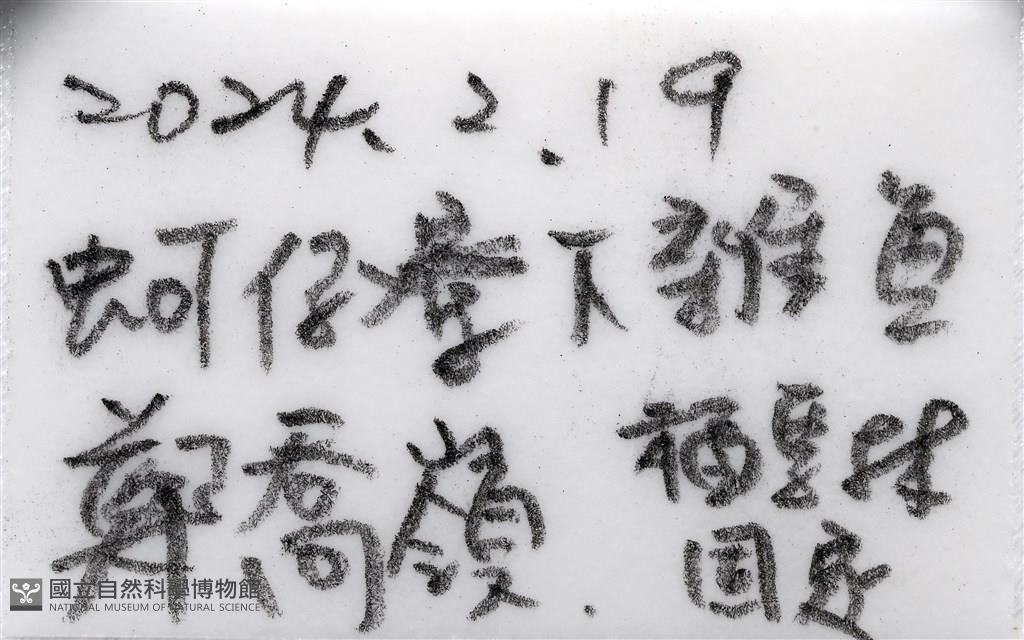 2024.2.19
蚵仔寮下雜魚
鄭喬嶺
福豐林
國定
國立自然科學博物館
NATIONAL MUSEUM OF NATURAL SCIENCE